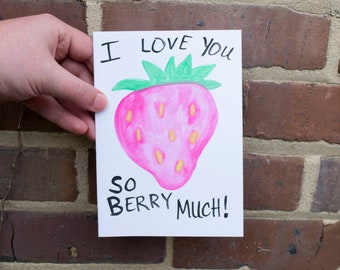 I LOVE YOU
SO
BERRY MUCH!